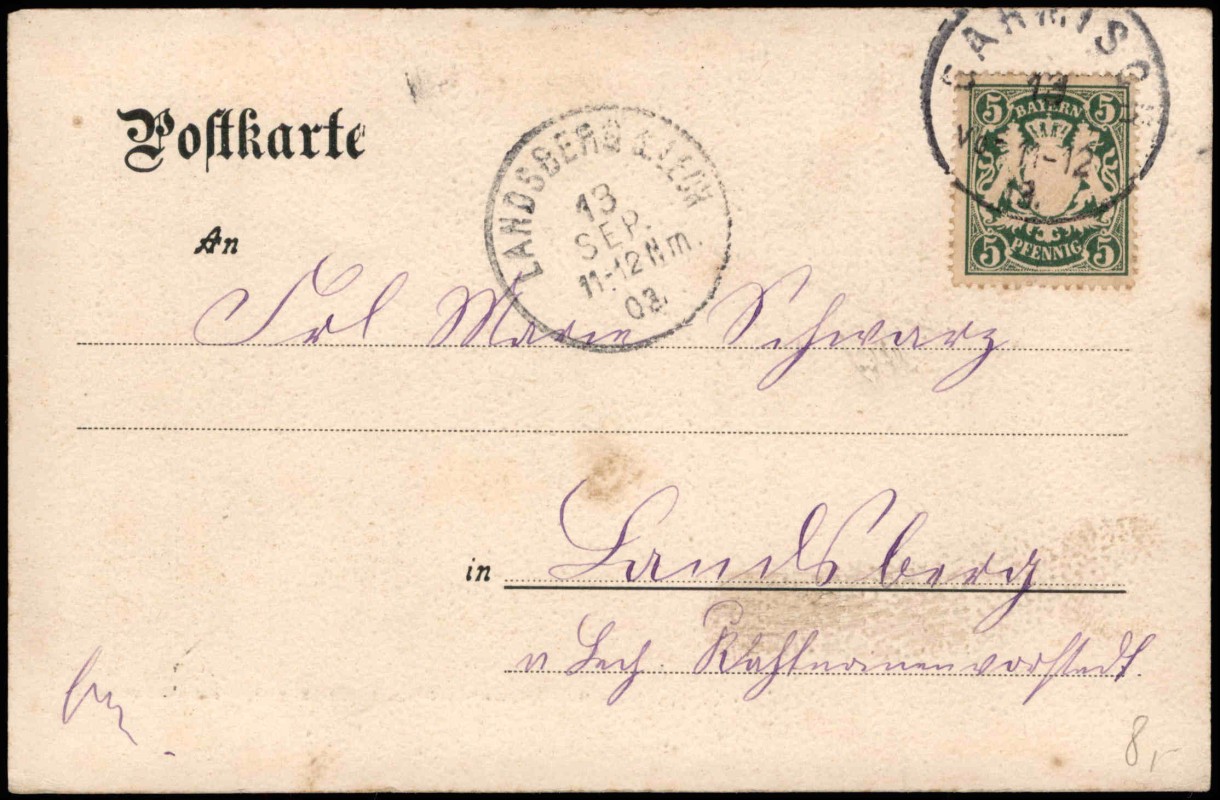 Postkarte
GARMISCH
13
11-12
BAYERN
5 5
5 5
PFENNIG
LANDSBERG A. LECH
13
SEP.
11-12 Nm.
03.
An
Frl Marie Schwarz
in Landsberg
Lech.
8,-